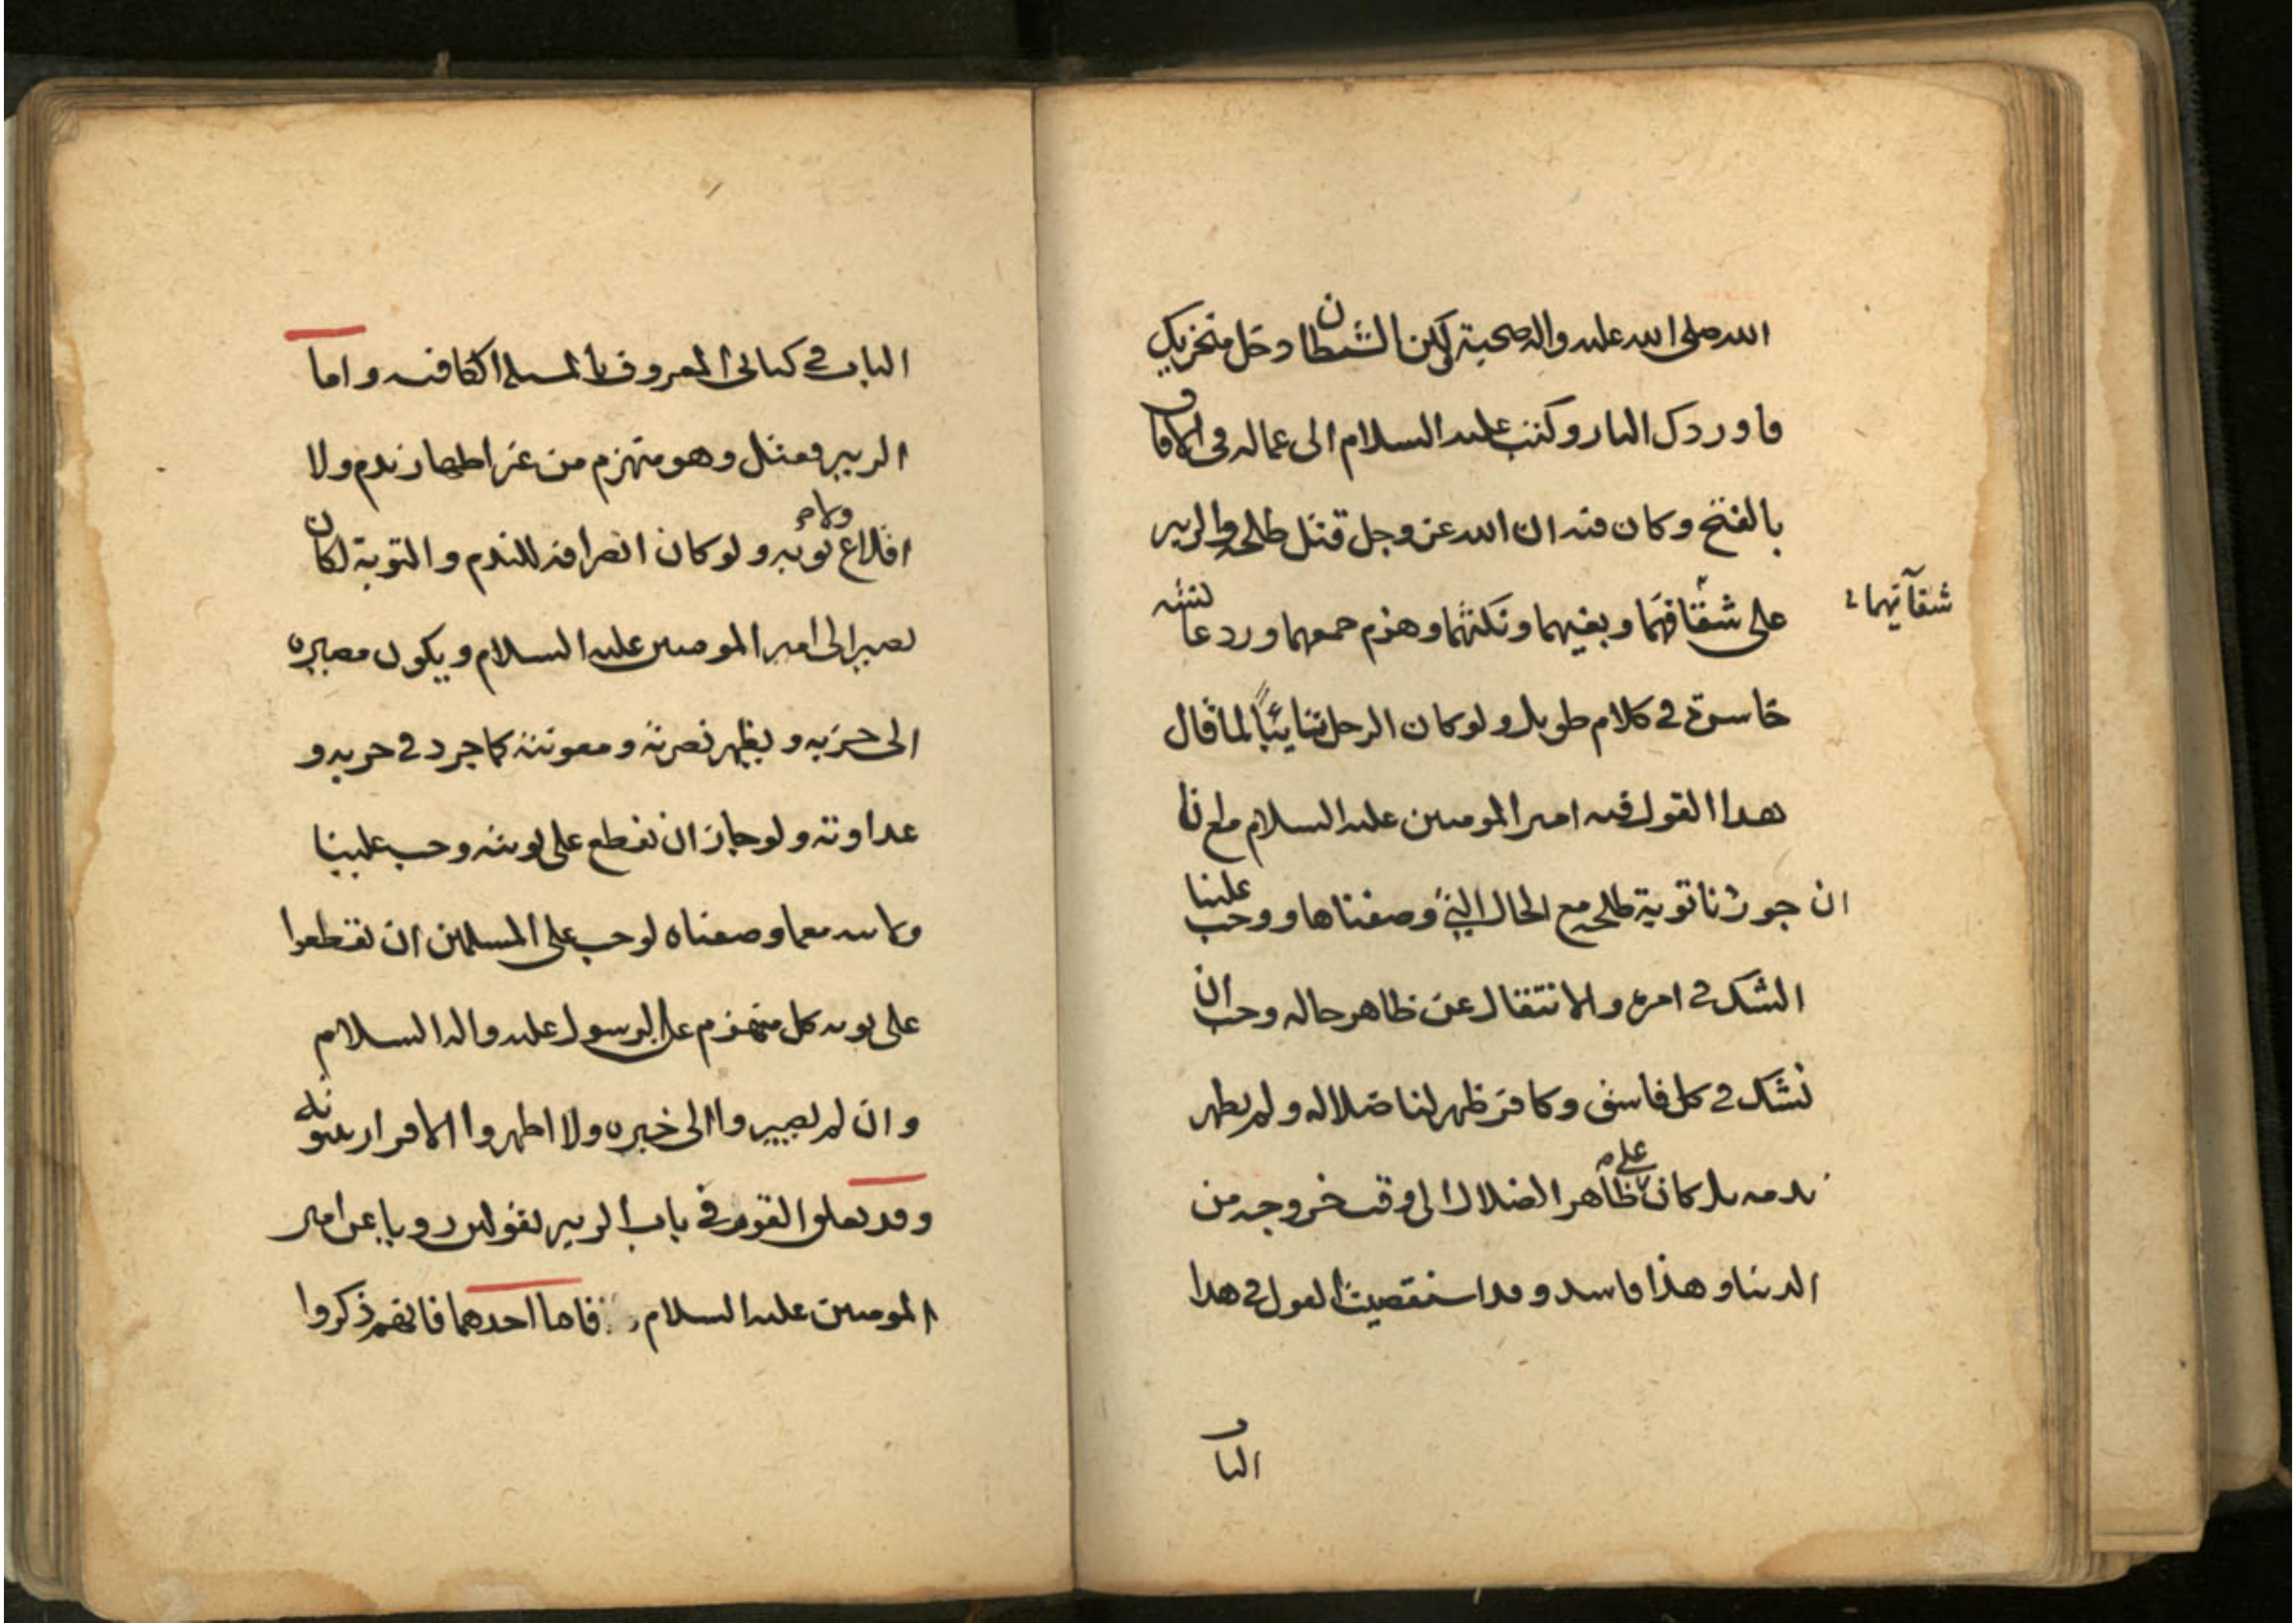 الله صلى الله عليه واله صحبة لكن الشيطان دخل منخريك
فاوردك النار وكتب عليه السلام الى عماله فى الافاق
بالفتح وكان فيه ان الله عز وجل قتل طلحة والزبير
على شقاقهما وبغيهما ونكثهما وهزم جمعهما ورد عائشه
شقآتهما
خاسرة فى كلام طويل ولو كان الرجل تايبًا لما قال
هذا القول فيه امير المومنين عليه السلام مع انا
ان جوزنا توبة طلحة مع الحال التى وصفناها ووجب علينا
الشك فى امره والانتقال عن ظاهر حاله وجب ان
نشك فى كل فاسق وكافر ظهر لنا ضلاله ولم يظهر
ندمه بل كان على ظاهر الضلال الى وقت خروجه من
الدنيا وهذا فاسد وقد استقصيت القول فى هذا
الباب
الباب فى كتابى المعروف بالمسئلة الكافيه واما
الزبير فقتل وهو منهزم من غير اظهار ندم ولا
اقلاع ولا توبه ولو كان انصرافه للندم والتوبة لكان
يصير الى امير المومنين عليه السلام ويكون مصيره
الى حزبه ويظهر نصرته ومعونته كما جرد فى حربه و
عداوته ولو جاز ان نقطع على توبته وجب علينا
ولايته مع ما وصفناه لوجب على المسلمين ان يقطعوا
على توبه كل منهزم على الرسول عليه واله السلام
وان لم يصيروا الى خبره ولا اظهروا الاقرار بنبوته
وقد تعلق القوم فى باب الزبير بقولين رويا عن امير
المومنين عليه السلام فاما احدهما فانهم ذكروا